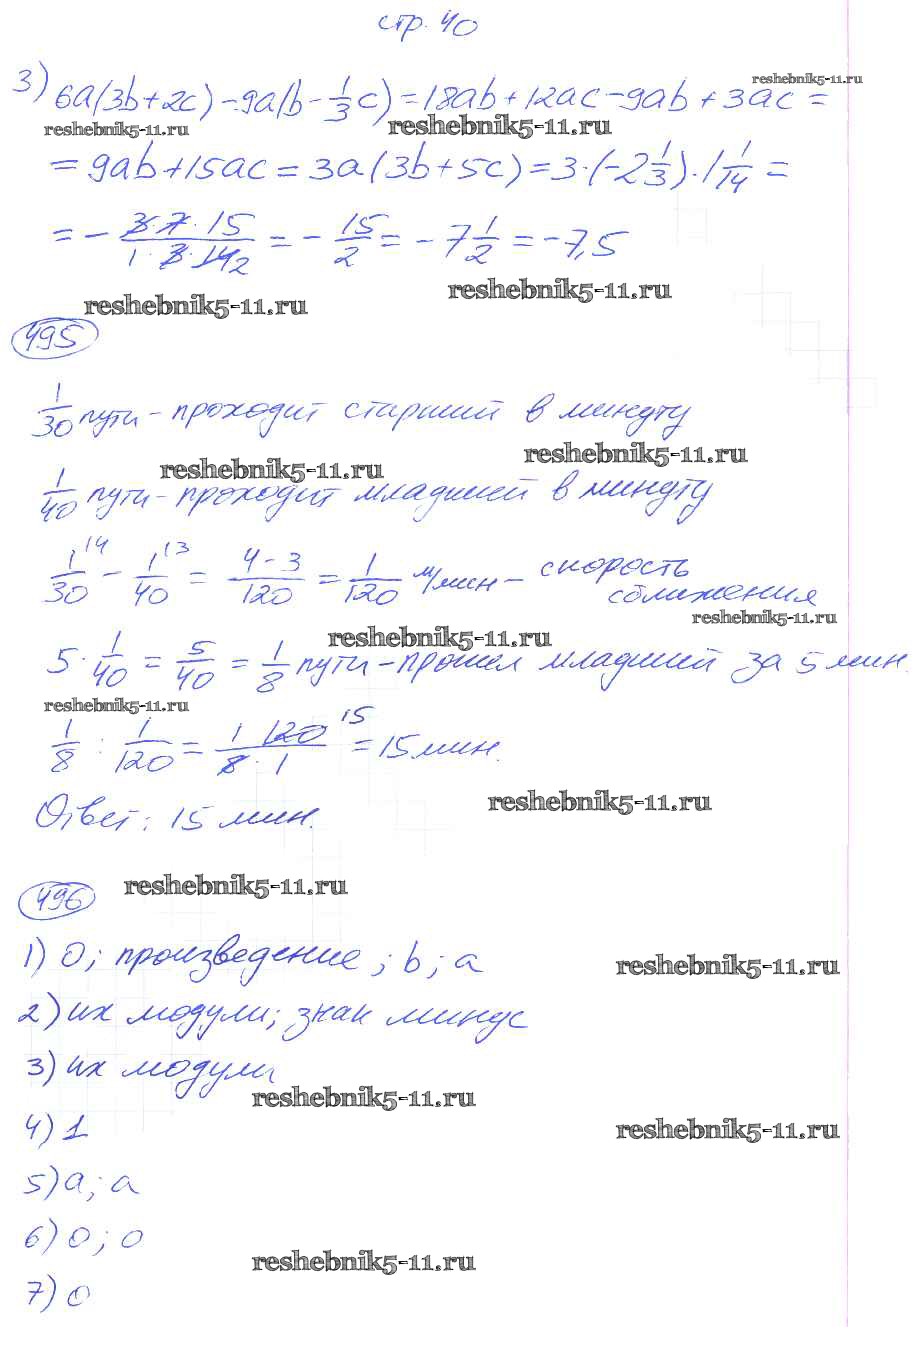 стр. 40
reshebnik5-11.ru
3) 6a(3b+2c)-9a(b-1/3c)=18ab+12ac-9ab+3ac=
reshebnik5-11.ru reshebnik5-11.ru
=9ab+15ac=3a(3b+5c)=3·(-2 1/3)·1 1/14=
=-3·7·15/1·3·14 2=-15/2=-7 1/2=-7,5
reshebnik5-11.ru reshebnik5-11.ru
495
1/30 пути - проходит старший в минуту
reshebnik5-11.ru reshebnik5-11.ru
1/40 пути - проходит младший в минуту
1\4/30 - 1\3/40 = 4-3/120 = 1/120 м/мин - скорость
сближения
reshebnik5-11.ru reshebnik5-11.ru
5·1/40=5/40=1/8 пути - прошел младший за 5 мин.
reshebnik5-11.ru
1/8 : 1/120 = 1 120 15/8·1 = 15 мин.
reshebnik5-11.ru
Ответ: 15 мин.
496 reshebnik5-11.ru
1) 0; произведение; b; a
reshebnik5-11.ru
2) их модули; знак минус
3) их модули
reshebnik5-11.ru
4) 1
reshebnik5-11.ru
5) a; a
6) 0; 0
reshebnik5-11.ru
7) 0